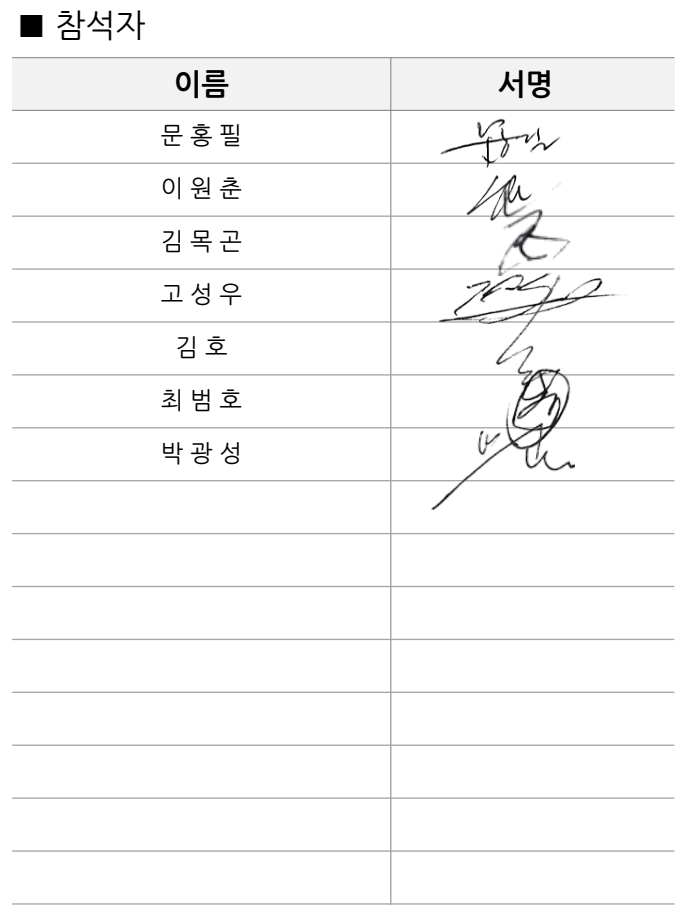 ■ 참석자
이름 서명
문홍필 문홍필
이원춘
김목곤
고성우
김호
최범호
박광성